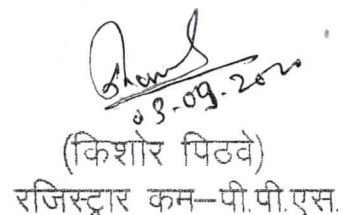 03.09.2020
(किशोर पिठवे)
रजिस्ट्रार कम–पी.पी.एस.